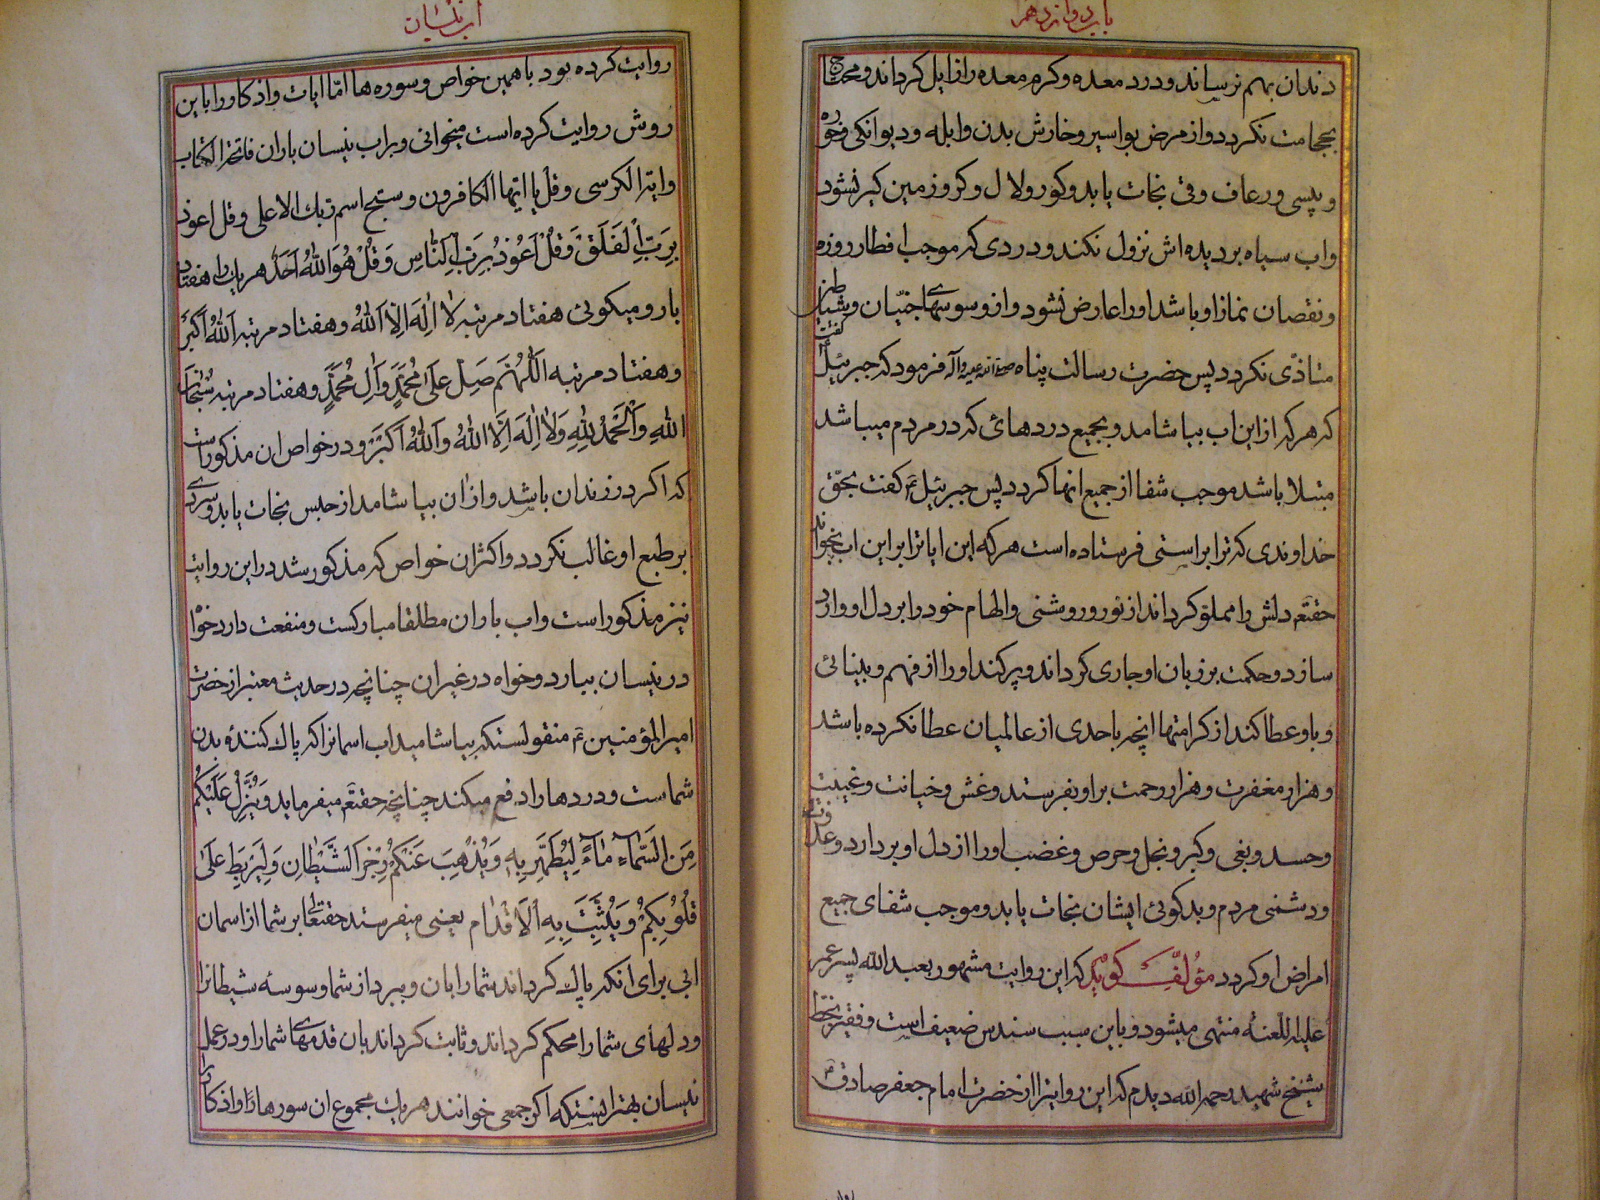 باب دوازدهم
دندان بهم نرساند و درد معده و کرم معده را زایل کرداند و محتاج
بحجامت نکردد و از مرض بواسیر و خارش بدن و ابله و دیوانکی و خوره
و پیسی و رعاف و قی نجات یابد و کور و لال و کر و زمین کیر نشود
و اب سیاه بر دیده اش نزول نکند و دردی که موجب افطار روزه
و نقصان نماز او باشد او را عارض نشود و از وسوسهای جنیان و شیاطین
متاذی نکردد پس حضرت رسالت پناه صلی الله علیه و آله فرمود که جبرئیل گفت
که هر که از این اب بیاشامد و بجمیع دردهائی که در مردم میباشد
مبتلا باشد موجب شفا از جمیع انها کردد پس جبرئیل ع کفت بحق
خداوندی که ترا براستی فرستاده است هر که این ایاترا بر این اب بخواند
حقتعم دلش را مملو کرداند از نور و روشنی و الهام خود را بر دل او وارد
سازد و حکمت بر زبان او جاری کرداند و پر کند او را از فهم و بینائی
و باو عطا کند از کرامتها انچه باحدی از عالمیان عطا نکرده باشد
و هزار مغفرت و هزار رحمت بر او بفرستد و غش و خیانت و غیبت
و حسد و بغی و کبر و بخل و حرص و غضب او را از دل او بردارد و عداوت
و دشمنی مردم و بدکوئی ایشان نجات یابد و موجب شفای جمیع
امراض او کردد مؤلف کوید که این روایت مشهور بعبد الله پسر عمر
علیه اللعنه منتهی میشود و باین سبب سندش ضعیف است و فقیر بخط
شیخ شهید رحمه الله دیدم که این روایترا از حضرت امام جعفر صادق ع
اب نیسان
روایت کرده بود با همین خواص و سوره ها اما ایات و اذکار را باین
روش روایت کرده است میخوانی بر اب نیسان باران فاتحة الکتاب
و ایة الکرسی و قل یا ایها الکافرون و سبح اسم ربک الاعلی و قل اعوذ
بِرَبِّ الْفَلَقِ وَ قُلْ اَعُوذُ بِرَبِّ النَّاسِ وَ قُلْ هُوَ اللهُ اَحَدٌ هر یک را هفتاد
بار و میکوئی هفتاد مرتبه لا اِلَهَ اِلاَّ اللهُ و هفتاد مرتبه اَللهُ اَکْبَرُ
و هفتاد مرتبه اَللّهُمَّ صَلِّ عَلی مُحَمَّدٍ وَ آلِ مُحَمَّدٍ و هفتاد مرتبه سُبْحانَ
اللهِ وَ الْحَمْدُ لِلّهِ وَ لا اِلَهَ اِلَّا اللهُ وَ اللهُ اَکْبَرُ و در خواص ان مذکور است
که اکر در زندان باشد و از ان بیاشامد از حبس نجات یابد و سردی
بر طبع او غالب نکردد و اکثر ان خواص که مذکور شد در این روایت
نیز مذکور است و اب باران مطلقا مبارکست و منفعت دارد خواه
در نیسان ببارد و خواه در غیر ان چنانچه در حدیث معتبر از حضرت
امیر المؤمنین ع منقولستکه بیاشامید اب اسمانرا که پاک کنندهٔ بدن
شماست و دردها را دفع میکند چنانچه حقتعم میفرماید وَ یُنَزِّلُ عَلَیْکُمْ
مِنَ السَّمآءِ مآءً لِیُطَهِّرَکُم بِهِ وَ یُذْهِبَ عَنْکُمْ رِجْزَ الشَّیْطانِ وَ لِیَرْبِطَ عَلی
قُلُوبِکُمْ وَ یُثَبِّتَ بِهِ الْاَقْدامَ یعنی میفرستد حقتعالی بر شما از اسمان
ابی برای انکه پاک کرداند شما را بان و ببرد از شما وسوسهٔ شیطانرا
و دلهای شما را محکم کرداند و ثابت کرداند بان قدمهای شما را و در عمل
نیسان بهتر اینستکه اکر جمعی خوانند هر یک مجموع ان سورها و اذکار را